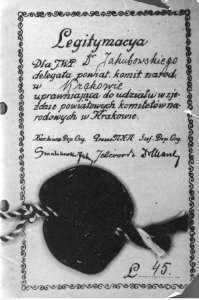 Legitymacya
Dla JWP. Dr Jakubowskiego
delegata powiat. komit. narod.
w Krakowie
uprawniająca do udziału w zje-
ździe powiatowych komitetów na-
rodowych w Krakowie.
Prezes PKN Szef Dep. Org.
L. 45.